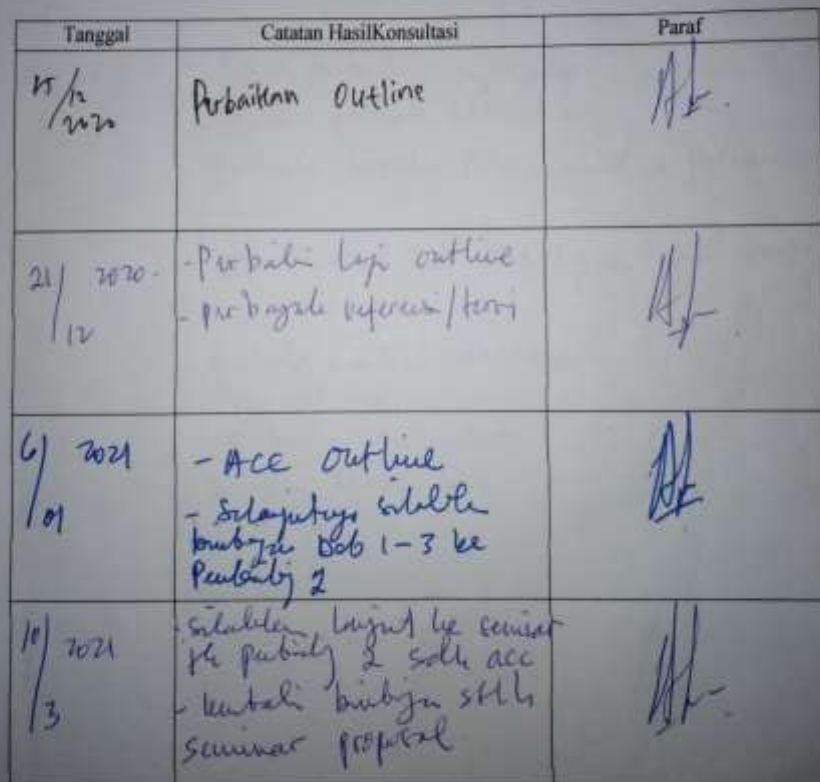 Tanggal Catatan HasilKonsultasi Paraf
/12
2020 Perbaikan Outline
21/12 2020 - Perbaiki lagi outline
- perbanyak referensi/teori
6/01 2021 - ACC outline
- Selanjutnya silahkan
bimbingan Bab 1-3 ke
Pembimbing 2
10/3 2021 - silahkan lanjut ke seminar
pembimbing 2 sdh acc
- kembali bimbingan stlh
seminar proposal